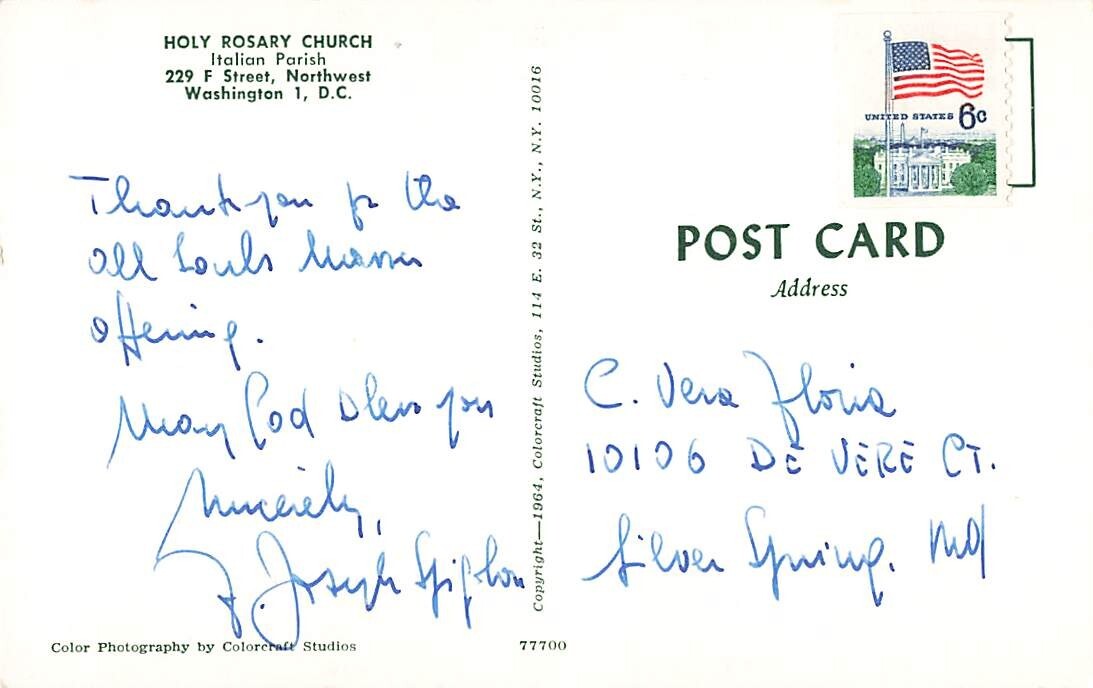 HOLY ROSARY CHURCH
Italian Parish
229 F Street, Northwest
Washington 1, D.C.
Thank you for the
All Souls Masses
offering.
May God bless you
Sincerely,
F. Joseph
Color Photography by Colorcraft Studios
77700
Copyright—1964, Colorcraft Studios, 114 E. 32 St., N.Y., N.Y. 10016
UNITED STATES 6c
POST CARD
Address
C. Vera Floria
10106 DE VERE CT.
Silver Spring, Md